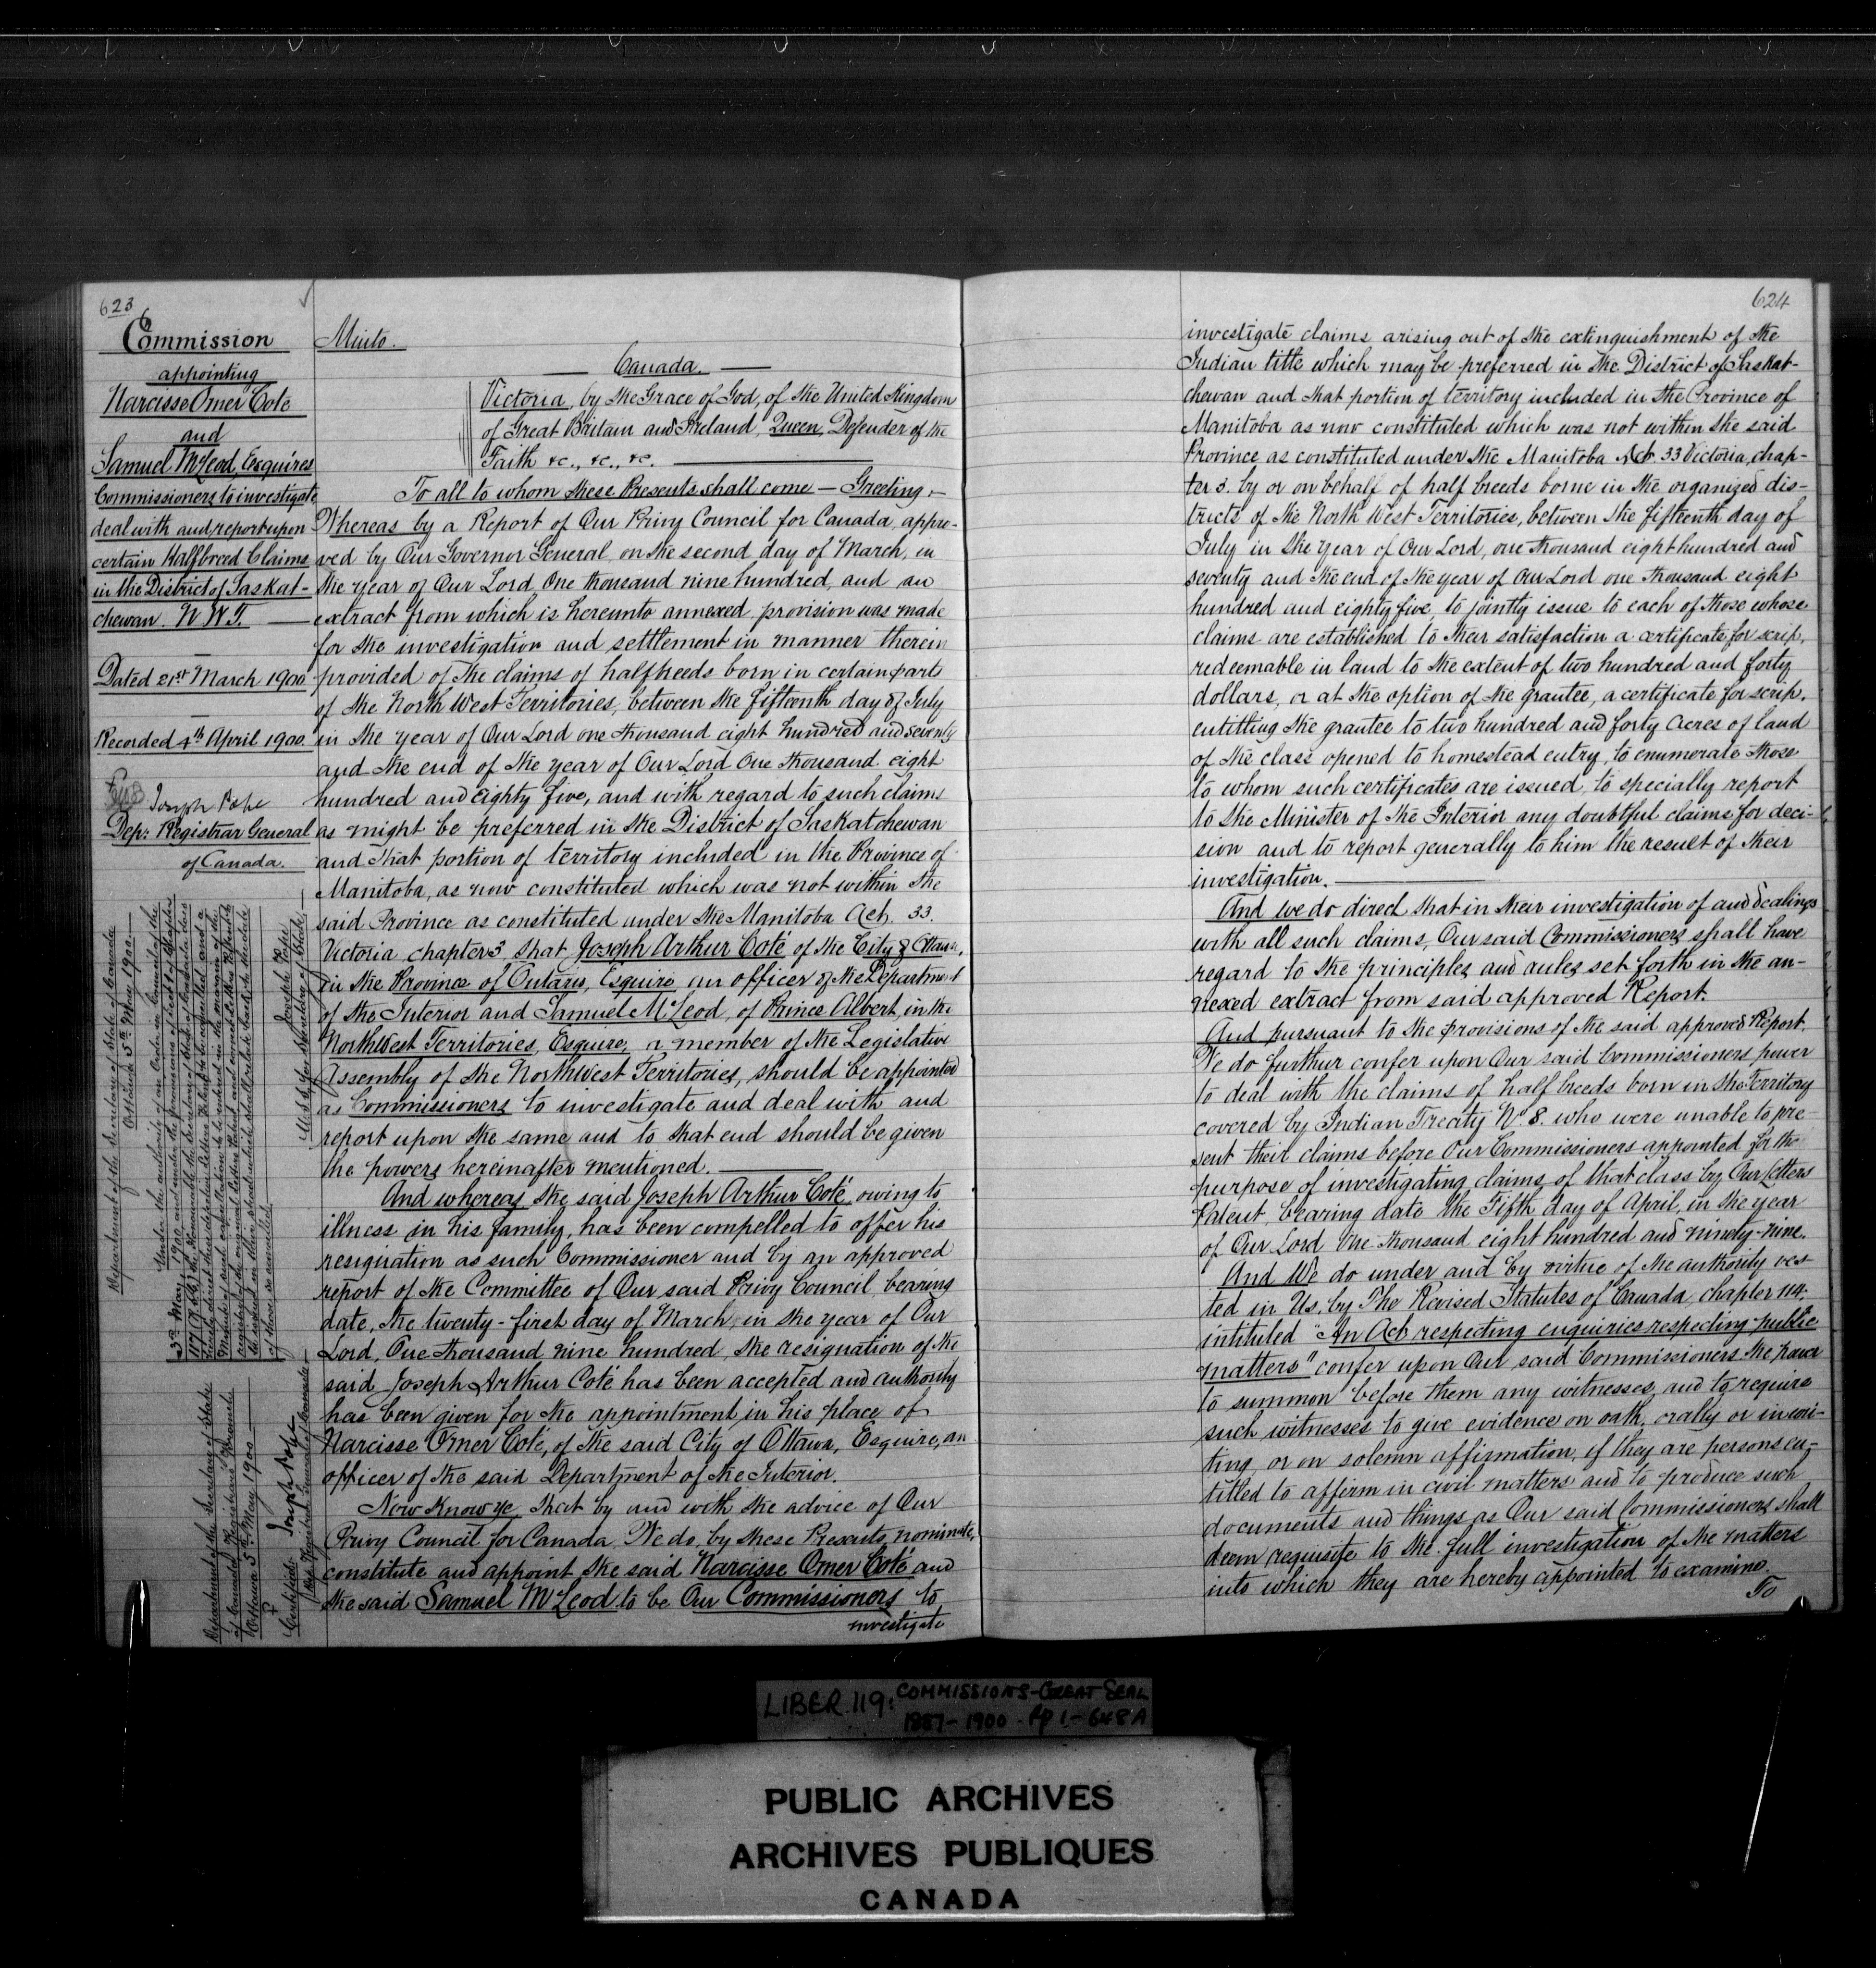 623
Commission
appointing
Narcisse Omer Coté
and
Samuel McLeod Esquires
Commissioners to investigate
deal with and report upon
certain Halfbreed Claims
in the District of Saskat-
chewan. N.W.T.
Dated 21st March 1900
Recorded 4th April 1900.
Joseph Pope
Dep: Registrar General
of Canada.
Department of the Secretary of State of Canada
Ottawa 5th May 1900.
Under the authority of an Order in Council of the
3rd May 1900 and under the provisions of
Joseph Pope
Department of the Secretary of State
of Canada, Registrar's Branch
Ottawa 5th May 1900
Certified. Joseph Pope
Minto.
Canada.
Victoria, by the Grace of God, of the United Kingdom
of Great Britain and Ireland, Queen, Defender of the
Faith &c., &c., &c.
To all to whom these Presents shall come — Greeting:—
Whereas by a Report of Our Privy Council for Canada, appro-
ved by Our Governor General on the second day of March, in
the year of Our Lord, One thousand nine hundred, and an
extract from which is hereunto annexed provision was made
for the investigation and settlement in manner therein
provided of the claims of halfbreeds born in certain parts
of the North West Territories, between the fifteenth day of July
in the year of Our Lord one thousand eight hundred and seventy
and the end of the year of Our Lord One thousand eight
hundred and eighty five, and with regard to such claims
as might be preferred in the District of Saskatchewan
and that portion of territory included in the Province of
Manitoba, as now constituted which was not within the
said Province as constituted under the Manitoba Act. 33.
Victoria chapter 3 that Joseph Arthur Coté of the City of Ottawa,
in the Province of Ontario, Esquire an officer of the Department
of the Interior and Samuel McLeod, of Prince Albert, in the
Northwest Territories, Esquire, a member of the Legislative
Assembly of the Northwest Territories, should be appointed
as Commissioners to investigate and deal with and
report upon the same and to that end should be given
the powers hereinafter mentioned.
And whereas the said Joseph Arthur Coté, owing to
illness in his family, has been compelled to offer his
resignation as such Commissioner and by an approved
report of the Committee of Our said Privy Council, bearing
date, the twenty-first day of March, in the year of Our
Lord, One thousand nine hundred, the resignation of the
said Joseph Arthur Coté has been accepted and authority
has been given for the appointment in his place of
Narcisse Omer Coté, of the said City of Ottawa, Esquire, an
officer of the said Department of the Interior.
Now Know ye, that by and with the advice of Our
Privy Council for Canada, We do, by these Presents, nominate,
constitute and appoint the said Narcisse Omer Coté and
the said Samuel McLeod to be Our Commissioners to
investigate
624
investigate claims arising out of the extinguishment of the
Indian title which may be preferred in the District of Saskat-
chewan and that portion of territory included in the Province of
Manitoba as now constituted which was not within the said
Province as constituted under the Manitoba Act. 33 Victoria, chap-
ter 3. by or on behalf of half breeds borne in the organized dis-
tricts of the North West Territories, between the fifteenth day of
July in the year of Our Lord, one thousand eight hundred and
seventy and the end of the year of Our Lord one thousand eight
hundred and eighty five, to jointly issue to each of those whose
claims are established to their satisfaction a certificate for scrip,
redeemable in land to the extent of two hundred and forty
dollars, or at the option of the grantee, a certificate for scrip.
entitling the grantee to two hundred and forty acres of land
of the class opened to homestead entry, to enumerate those
to whom such certificates are issued, to specially report
to the Minister of the Interior any doubtful claims for deci-
sion and to report generally to him the result of their
investigation.
And we do direct that in their investigation of and dealings
with all such claims, Our said Commissioners shall have
regard to the principles and rules set forth in the an-
nexed extract from said approved Report.
And pursuant to the provisions of the said approved Report.
We do further confer upon Our said Commissioners power
to deal with the claims of half breeds born in the Territory
covered by Indian Treaty No. 8. who were unable to pre-
sent their claims before Our Commissioners appointed for the
purpose of investigating claims of that class by Our Letters
Patent, bearing date the Fifth day of April, in the year
of Our Lord One thousand eight hundred and ninety-nine.
And We do under and by virtue of the authority ves-
ted in Us, by The Revised Statutes of Canada, chapter 114:
intituled "An Act respecting enquiries respecting public
matters" confer upon Our said Commissioners the power
to summon before them any witnesses, and to require
such witnesses to give evidence on oath, orally or in wri-
ting or on solemn affirmation, if they are persons en-
titled to affirm in civil matters and to produce such
documents and things as Our said Commissioners shall
deem requisite to the full investigation of the matters
into which they are hereby appointed to examine.
To
LIBER 119: COMMISSIONS-GREAT SEAL
1887-1900 - pp 1-648A
PUBLIC ARCHIVES
ARCHIVES PUBLIQUES
CANADA